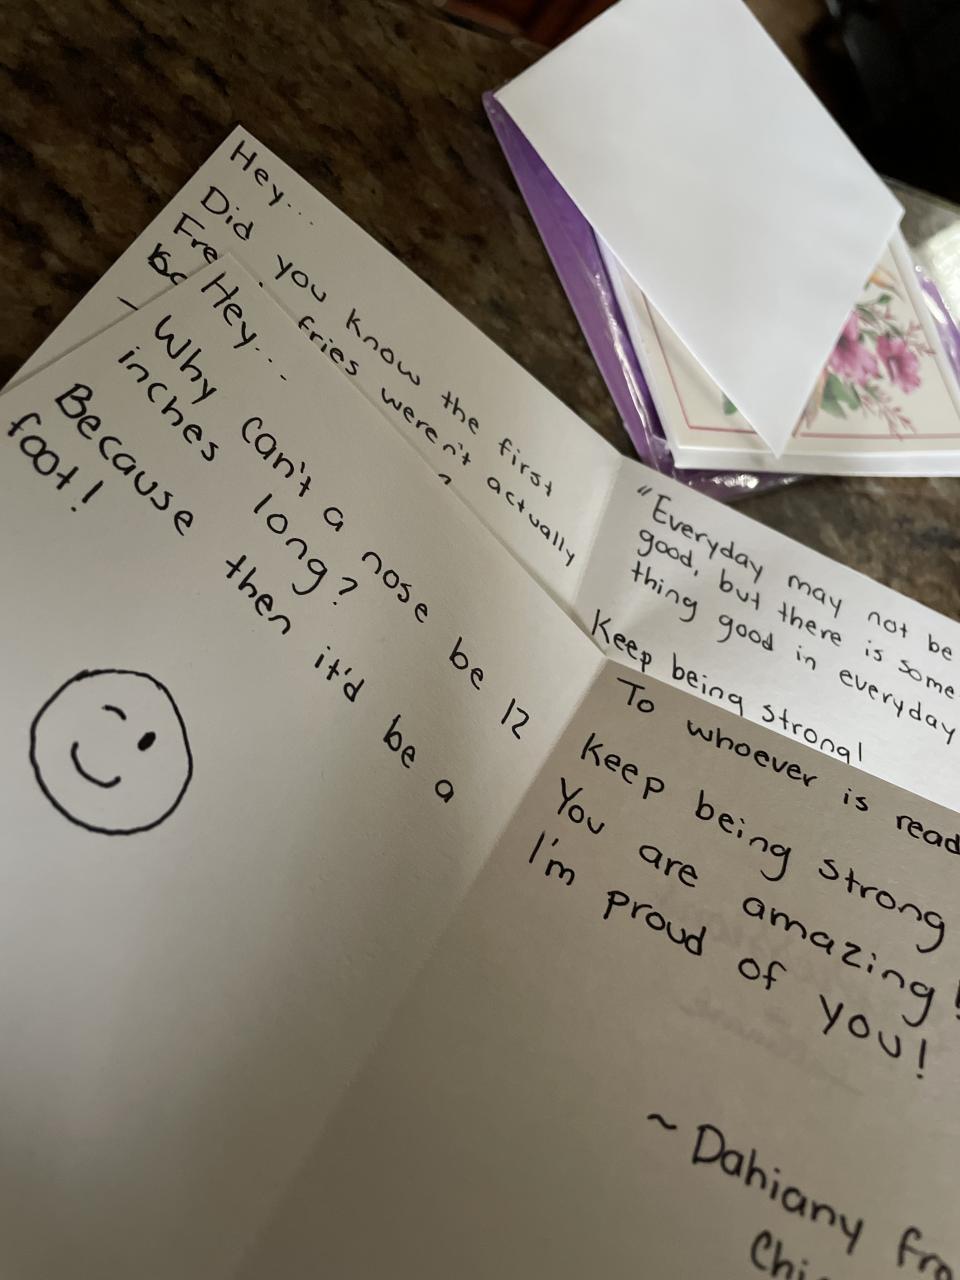 Hey...
Did you know the first
fries weren't actually
"Everyday may not be
good, but there is some
thing good in everyday
Keep being strong!
Hey...
Why can't a nose be 12
inches long?
Because then it'd be a
foot!
To whoever is
Keep being strong
You are amazing!
I'm proud of you!
~Dahiany